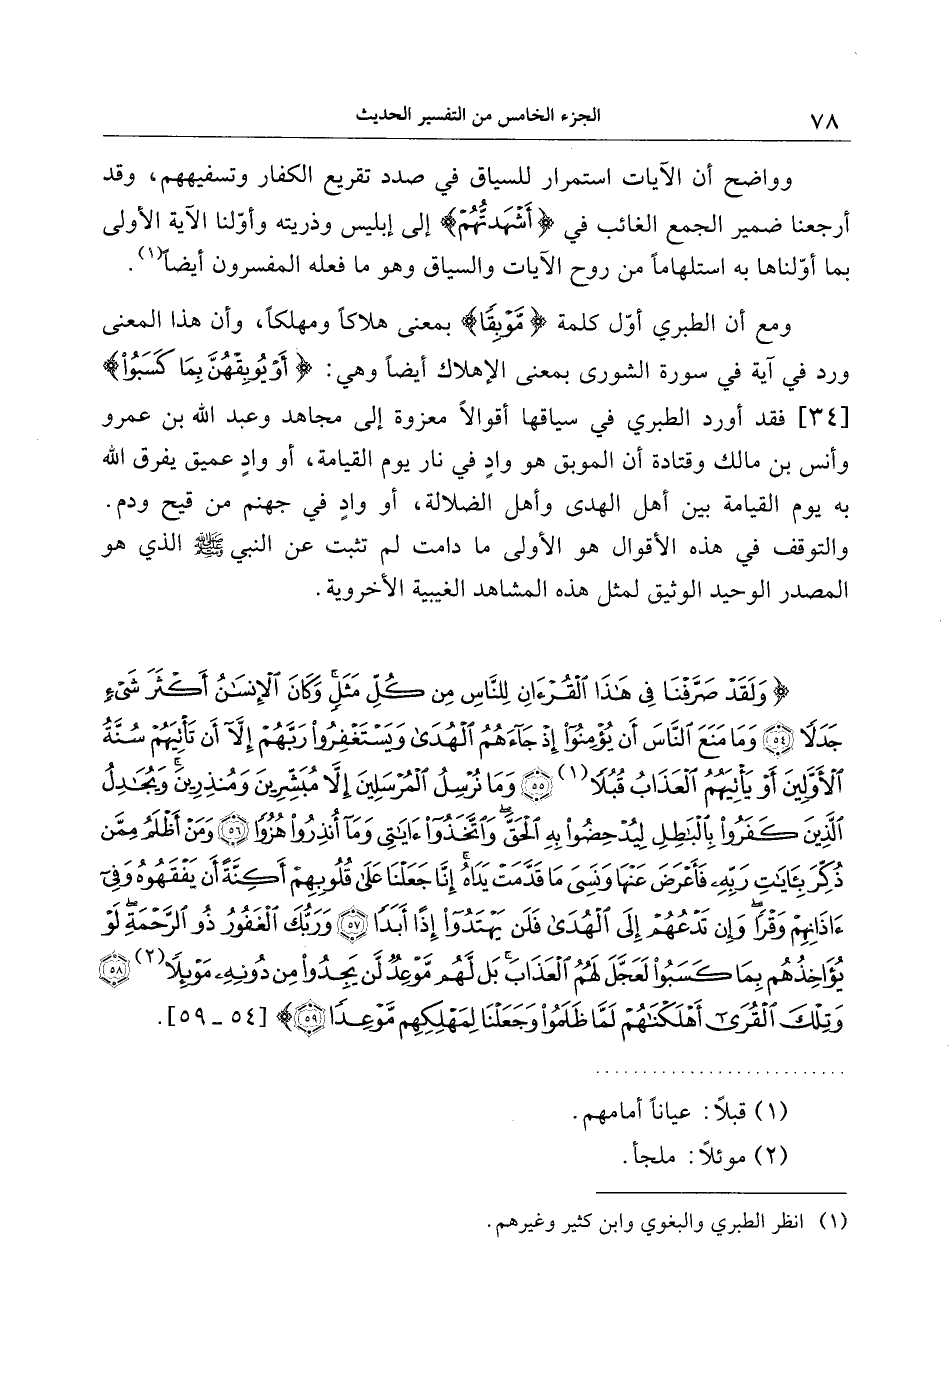 ٧٨ الجزء الخامس من التفسير الحديث
وواضح أن الآيات استمرار للسياق في صدد تقريع الكفار وتسفيههم، وقد
أرجعنا ضمير الجمع الغائب في ﴿أَشْهَدتُّهُمْ﴾ إلى إبليس وذريته وأوّلنا الآية الأولى
بما أوّلناها به استلهاماً من روح الآيات والسياق وهو ما فعله المفسرون أيضاً(١).
ومع أن الطبري أوّل كلمة ﴿مَّوْبِقًا﴾ بمعنى هلاكاً ومهلكاً، وأن هذا المعنى
ورد في آية في سورة الشورى بمعنى الإهلاك أيضاً وهي: ﴿أَوْ يُوبِقْهُنَّ بِمَا كَسَبُوا۟﴾
[٣٤] فقد أورد الطبري في سياقها أقوالاً معزوة إلى مجاهد وعبد الله بن عمرو
وأنس بن مالك وقتادة أن الموبق هو وادٍ في نار يوم القيامة، أو وادٍ عميق يفرق الله
به يوم القيامة بين أهل الهدى وأهل الضلالة، أو وادٍ في جهنم من قيح ودم.
والتوقف في هذه الأقوال هو الأولى ما دامت لم تثبت عن النبي ﷺ الذي هو
المصدر الوحيد الوثيق لمثل هذه المشاهد الغيبية الأخروية.
﴿وَلَقَدْ صَرَّفْنَا فِى هَـٰذَا ٱلْقُرْءَانِ لِلنَّاسِ مِن كُلِّ مَثَلٍ ۚ وَكَانَ ٱلْإِنسَـٰنُ أَكْثَرَ شَىْءٍ
جَدَلًا ٥٤ وَمَا مَنَعَ ٱلنَّاسَ أَن يُؤْمِنُوٓا۟ إِذْ جَآءَهُمُ ٱلْهُدَىٰ وَيَسْتَغْفِرُوا۟ رَبَّهُمْ إِلَّآ أَن تَأْتِيَهُمْ سُنَّةُ
ٱلْأَوَّلِينَ أَوْ يَأْتِيَهُمُ ٱلْعَذَابُ قُبُلًا(١) ٥٥ وَمَا نُرْسِلُ ٱلْمُرْسَلِينَ إِلَّا مُبَشِّرِينَ وَمُنذِرِينَ ۚ وَيُجَـٰدِلُ
ٱلَّذِينَ كَفَرُوا۟ بِٱلْبَـٰطِلِ لِيُدْحِضُوا۟ بِهِ ٱلْحَقَّ ۖ وَٱتَّخَذُوٓا۟ ءَايَـٰتِى وَمَآ أُنذِرُوا۟ هُزُوًا ٥٦ وَمَنْ أَظْلَمُ مِمَّن
ذُكِّرَ بِـَٔايَـٰتِ رَبِّهِۦ فَأَعْرَضَ عَنْهَا وَنَسِىَ مَا قَدَّمَتْ يَدَاهُ ۚ إِنَّا جَعَلْنَا عَلَىٰ قُلُوبِهِمْ أَكِنَّةً أَن يَفْقَهُوهُ وَفِىٓ
ءَاذَانِهِمْ وَقْرًا ۖ وَإِن تَدْعُهُمْ إِلَى ٱلْهُدَىٰ فَلَن يَهْتَدُوٓا۟ إِذًا أَبَدًا ٥٧ وَرَبُّكَ ٱلْغَفُورُ ذُو ٱلرَّحْمَةِ ۖ لَوْ
يُؤَاخِذُهُم بِمَا كَسَبُوا۟ لَعَجَّلَ لَهُمُ ٱلْعَذَابَ ۚ بَل لَّهُم مَّوْعِدٌ لَّن يَجِدُوا۟ مِن دُونِهِۦ مَوْئِلًا(٢) ٥٨
وَتِلْكَ ٱلْقُرَىٰٓ أَهْلَكْنَـٰهُمْ لَمَّا ظَلَمُوا۟ وَجَعَلْنَا لِمَهْلِكِهِم مَّوْعِدًا ٥٩﴾ [٥٤ ـ ٥٩].
(١) قبلاً: عياناً أمامهم.
(٢) موئلاً: ملجأ.
(١) انظر الطبري والبغوي وابن كثير وغيرهم.